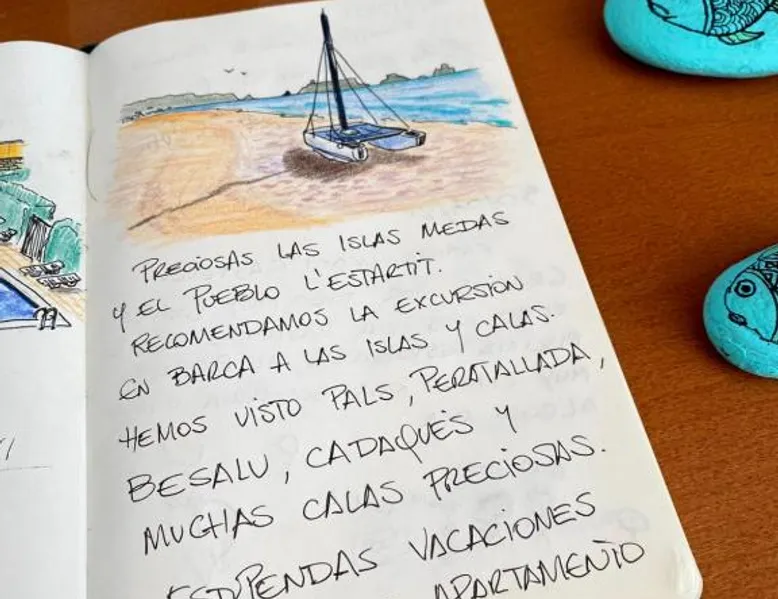 PRECIOSAS LAS ISLAS MEDAS
Y EL PUEBLO L'ESTARTIT.
RECOMENDAMOS LA EXCURSIÓN
EN BARCA A LAS ISLAS Y CALAS.
HEMOS VISTO PALS, PERATALLADA,
BESALU, CADAQUÉS Y
MUCHAS CALAS PRECIOSAS.
ESTUPENDAS VACACIONES
APARTAMENTO